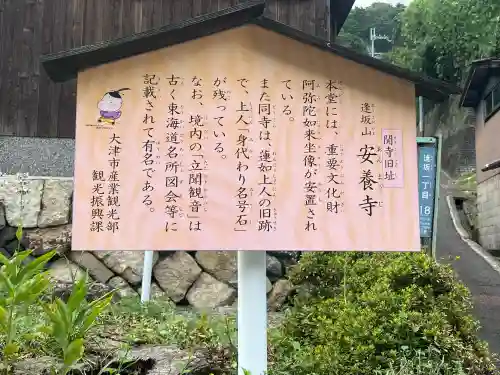 関寺旧址
逢坂山 安養寺
本堂には、重要文化財
阿弥陀如来坐像が安置され
ている。
また同寺は、蓮如上人の旧跡
で、上人「身代わり名号石」
が残っている。
なお、境内の「立聞観音」は
古く東海道名所図会等に
記載されて有名である。
大津市産業観光部
観光振興課
逢坂一丁目
18